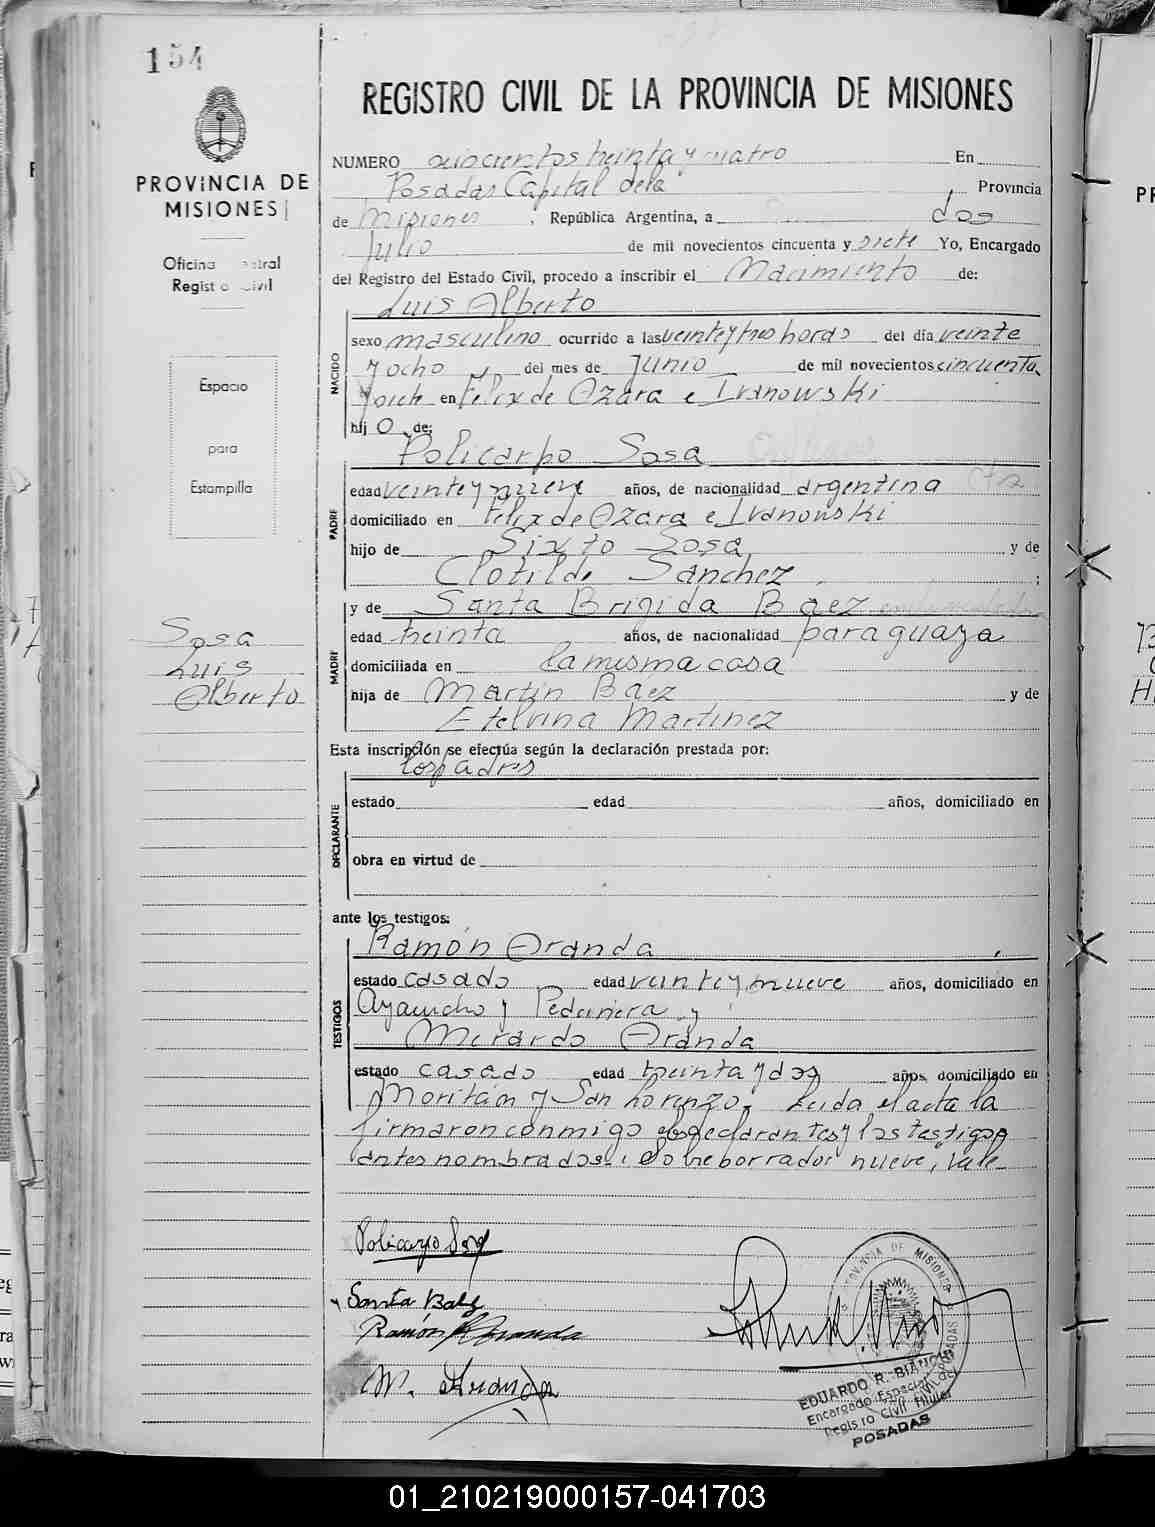 154
PROVINCIA DE
MISIONES
Oficina
Espacio
para
Estampilla
Sosa
Luis
Alberto
REGISTRO CIVIL DE LA PROVINCIA DE MISIONES
NUMERO quincientos treinta y cuatro En
Posadas Capital de la Provincia
de Misiones, República Argentina, a dos
Julio de mil novecientos cincuenta y siete Yo, Encargado
del Registro del Estado Civil, procedo a inscribir el Nacimiento de:
Luis Alberto
NACIDO
sexo masculino ocurrido a las veinte y tres horas del día veinte
y ocho del mes de Junio de mil novecientos cincuenta
y siete en Felix de Azara e Ivanowski
hij o de:
Policarpo Sosa
PADRE
edad veinte y nueve años, de nacionalidad argentina
domiciliado en Felix de Azara e Ivanowski
hijo de Sixto Sosa y de
Clotilde Sanchez ;
MADRE
y de Santa Brigida Baez
edad treinta años, de nacionalidad paraguaya
domiciliada en la misma casa
hija de Martin Baez y de
Etelvina Martinez
Esta inscripción se efectúa según la declaración prestada por:
los padres
DECLARANTE
estado edad años, domiciliado en
obra en virtud de
ante los testigos:
Ramón Aranda
TESTIGOS
estado casado edad veinte y nueve años, domiciliado en
Ayacucho y Pedernera y
Merardo Aranda
estado casado edad treinta y dos años, domiciliado en
Moritán y San Lorenzo. Leida el acta la
firmaron conmigo los declarantes y los testigos
antes nombrados. Sobreborrador nueve, Vale
Policarpo Sosa
Santa Baez
Ramón Aranda
M. Aranda
PROVINCIA DE MISIONES
POSADAS
EDUARDO R. BIANCHI
Encargado Especial del
Registro Civil Titular
POSADAS
01_210219000157-041703